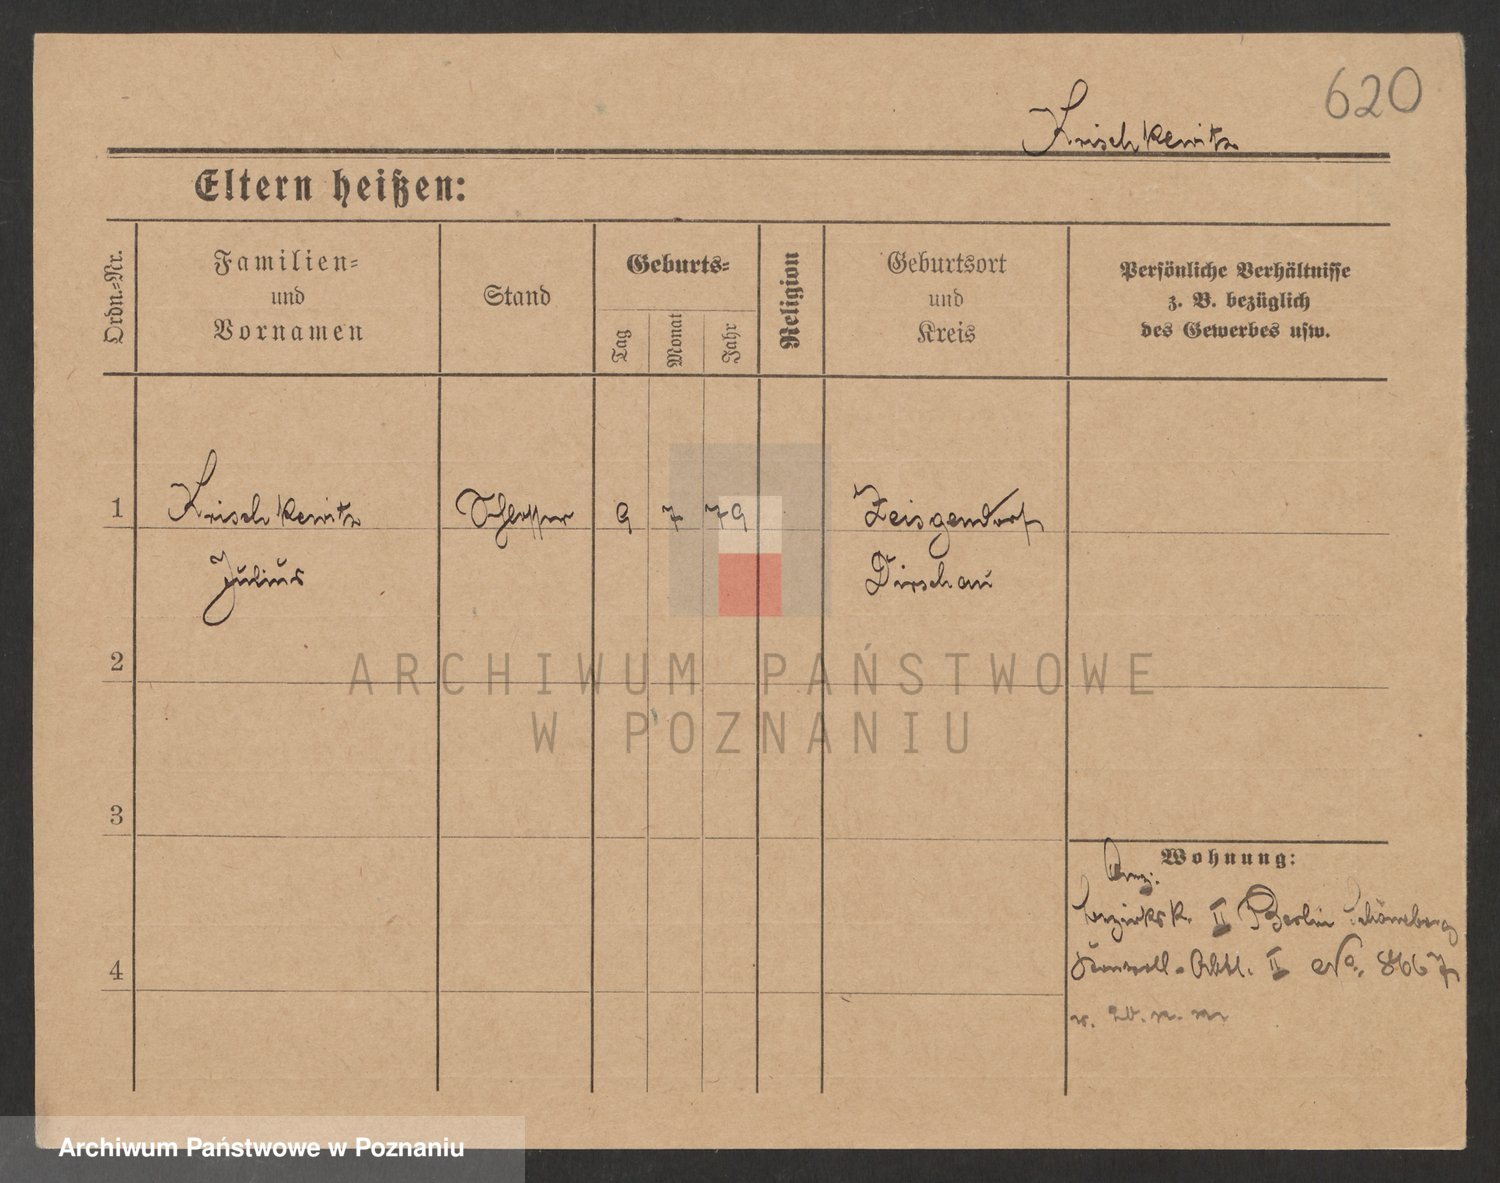 620
Krischkewitz
Eltern heißen:
Ordn.-Nr.
Familien-
und
Vornamen
Stand
Geburts-
Tag
Monat
Jahr
Religion
Geburtsort
und
Kreis
Persönliche Verhältnisse
z. B. bezüglich
des Gewerbes usw.
1 Krischkewitz Schlosser 9 7 79 Zeisgendorf
Julius Dirschau
ARCHIWUM PAŃSTWOWE
W POZNANIU
2
3
4
Wohnung:
bezirksk. II Berlin Schöneberg
Kontroll-Abtl. II No. 8667
Archiwum Państwowe w Poznaniu